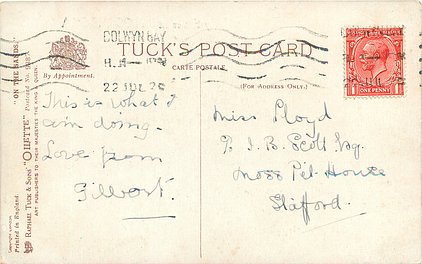 COLWYN BAY
22 JUL 26
TUCK'S POST CARD
CARTE POSTALE.
(FOR ADDRESS ONLY.)
By Appointment.
ONE PENNY
This is what I
am doing.
Love from
Gilbert.
Miss Lloyd
J. B. Scott Esq.
Moss Pit House
Stafford.
"ON THE SANDS."
RAPHAEL TUCK & SONS' "OILETTE"
ART PUBLISHERS TO THEIR MAJESTIES THE KING & QUEEN
Printed in England.
COPYRIGHT LONDON